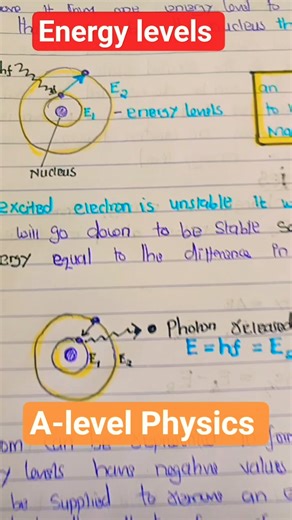 it from one energy level to
Energy levels
the nucleus
hf
E₂
E₁ - energy levels
an
to
Nucleus
excited electron is unstable it
will go down to be stable
equal to the difference in
Photon released
E₁ E₂
E = hf = E
A-level Physics
levels have negative values
be supplied to remove an